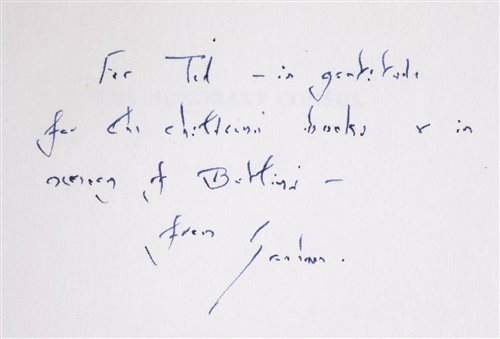 For Ted – in gratitude
for the children's books & in
memory of
from Graham.